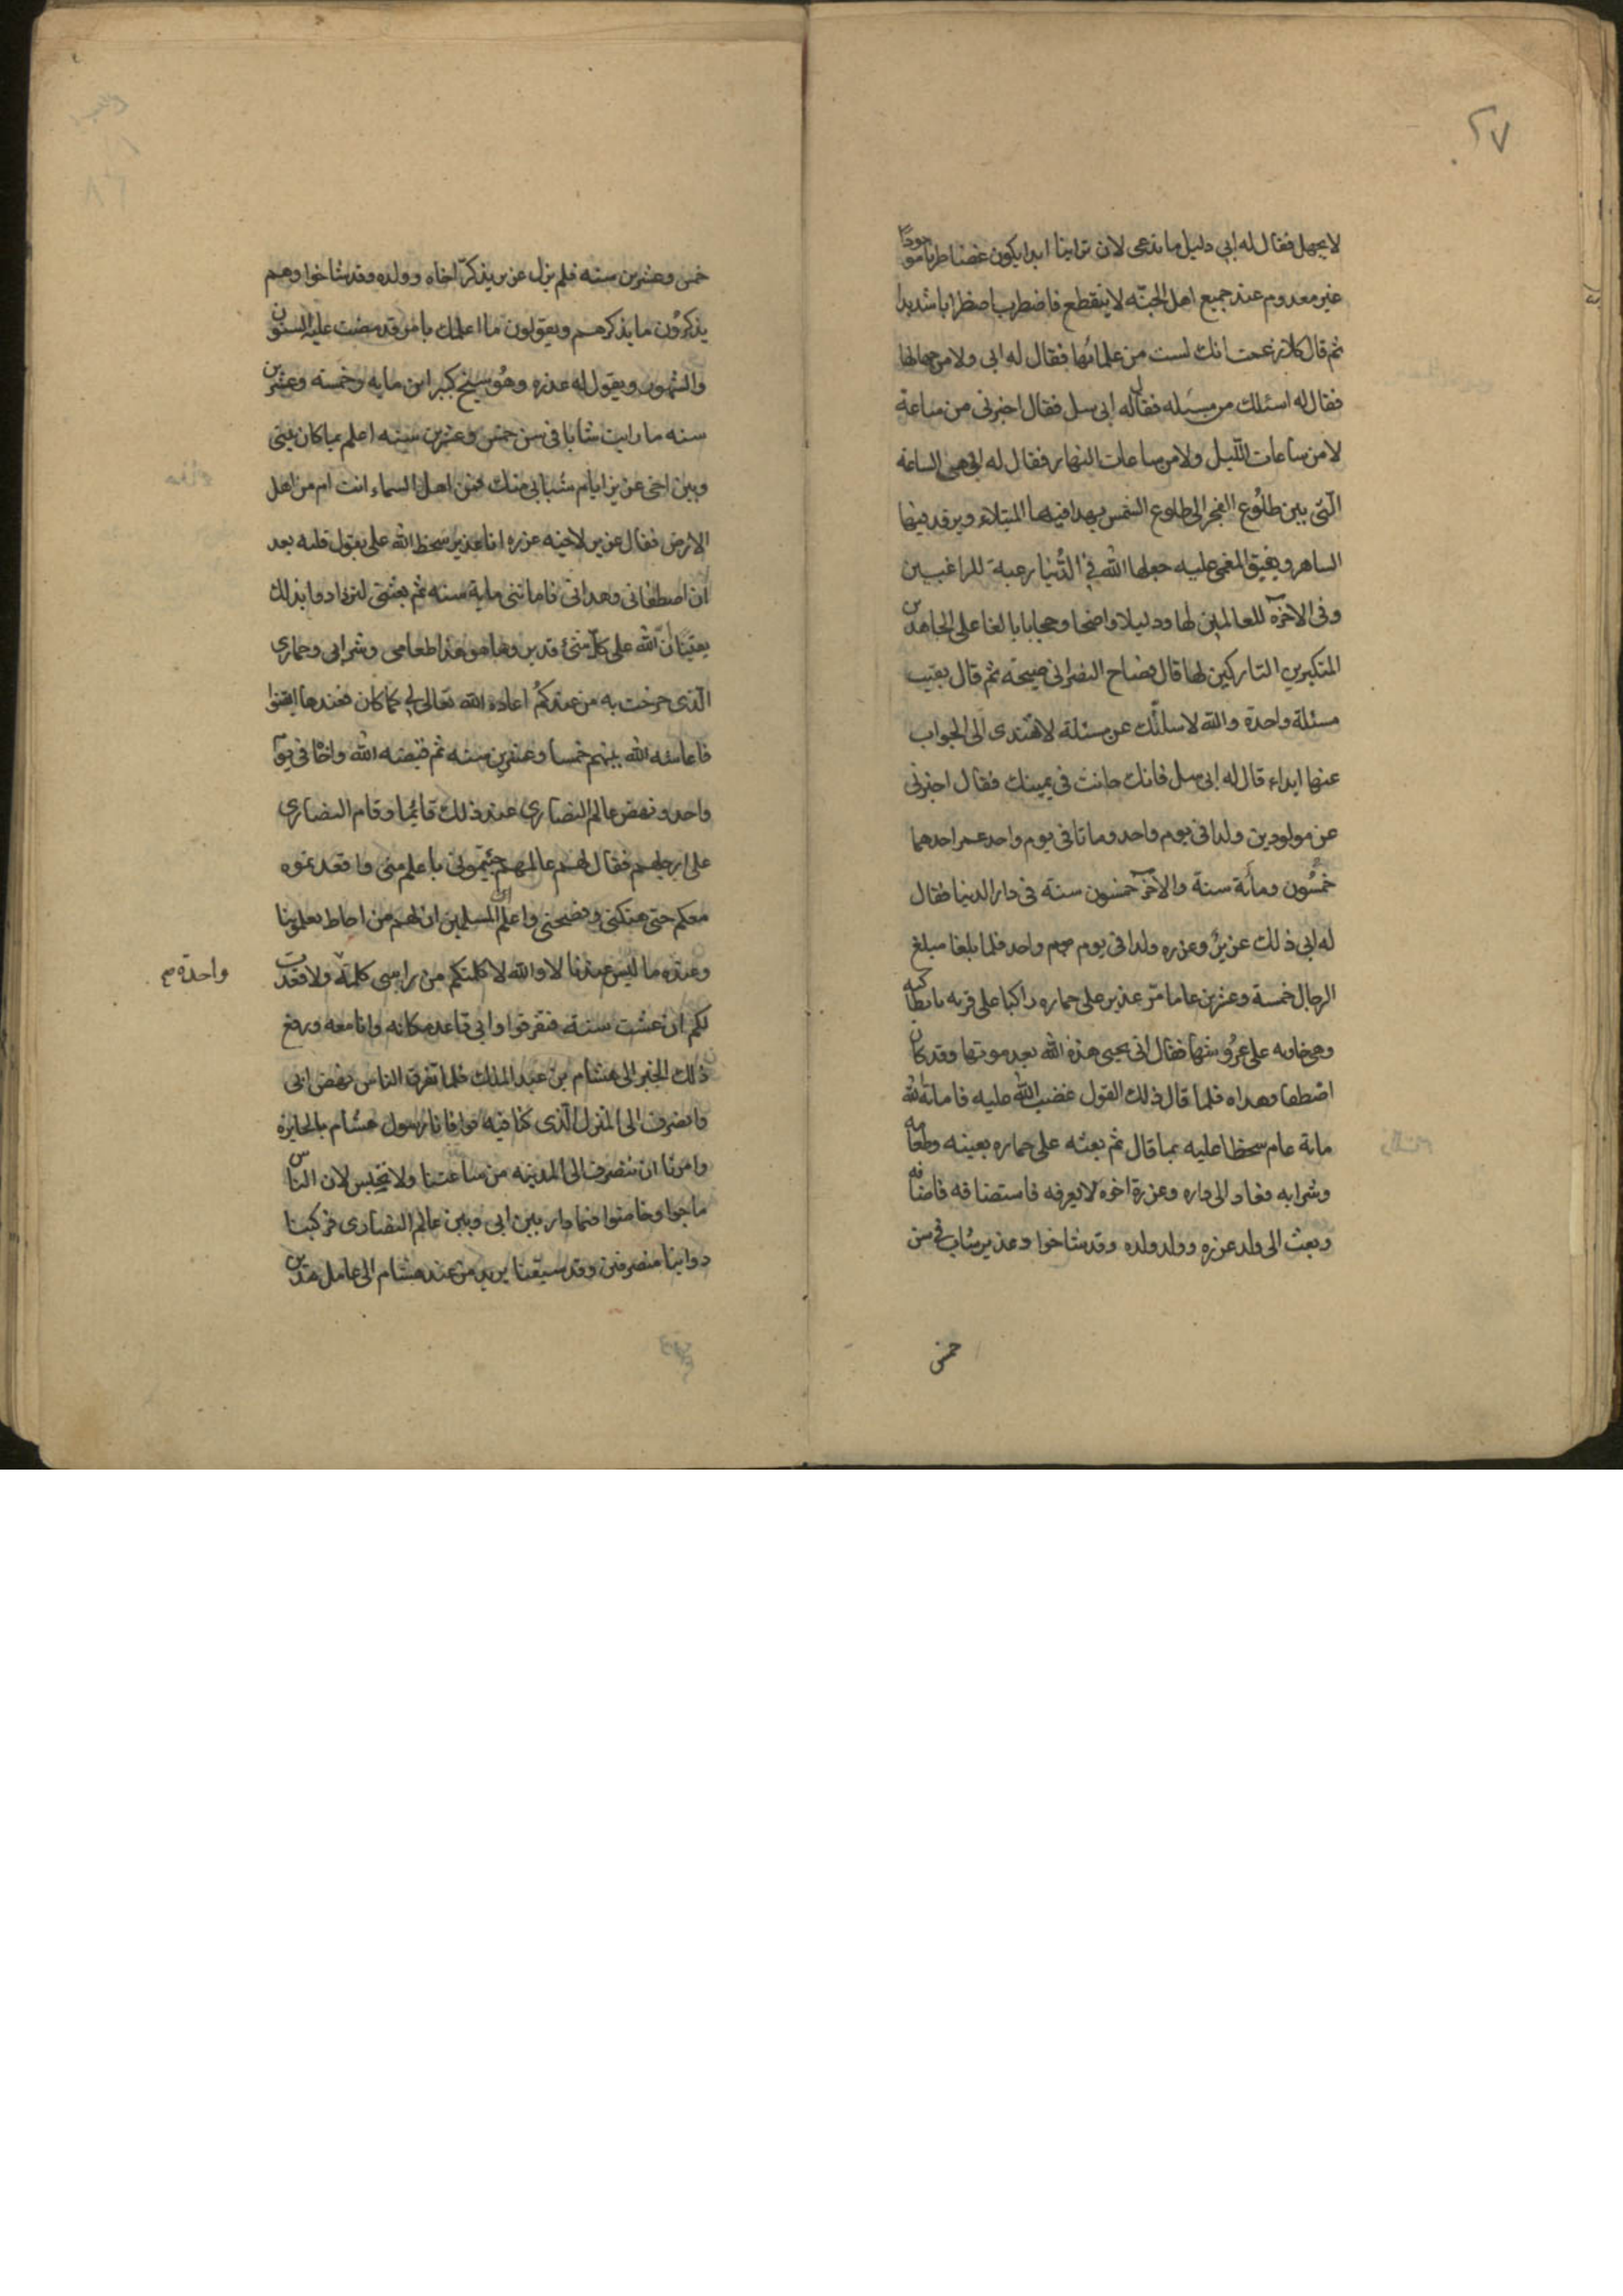 ٢٧
لا يجهل فقال له ابي دليل ما ندعى لان ترابنا ابدا يكون غضا طريا موجودًا
غير معدوم عند جميع اهل الجنّه لا ينقطع فاضطرب اضطرابا شديدا
ثم قال كلا زعمت انك لست من علمائها فقال له ابى ولا من جهالها
فقال له اسئلك من مسئله فقال له ابى سل فقال اخبرنى من ساعة
لا من ساعات اللّيل ولا من ساعات النهار فقال له ابى هى الساعه
الّتى بين طلُوع الفجر الى طلوع الشمس يهدا فيها المبتلاء ويرقد فيها
الساهر ويفيق المغمى عليه جعلها الله فى الدُّنيا رغبة للراغبين
وفى الاخرة للعالمين لها ودليلا واضحا وحجابا بالغا على الجاهدين
المتكبرين التاركين لها قال فصاح النصرانى صيحته ثم قال بقيت
مسئلة واحدة والله لاسلنّك عن مسئلة لا تهتدى الى الجواب
عنها ابداء قال له ابى سل فانك حانث فى يمينك فقال اخبرنى
عن مولودين ولدا فى يوم واحد وماتا فى يوم واحد عمر احدهما
خمسُون ومأئة سنة والآخر خمسون سنة فى دار الدنيا فقال
له ابى ذلك عزيرٌ وعزره ولدا فى يوم واحد فلما بلغا مبلغ
الرجال خمسة وعشرين عاما مرّ عزير على حماره راكبا على قريه بانطاكيه
وهى خاويه على عرُوشها فقال انى يحيى هذه الله بعد موتها وقد كان
اصطفا وهداه فلما قال ذلك القول غضب الله عليه فاماته الله
مائة عام سخطا عليه بما قال ثم بعثه على حماره بعينه وطعامه
وشرابه فعاد الى داره وعزرة اخوه لا يعرفه فاستضافه فاضافه
وبعث الى ولد عزره وولد ولده وقد شاخوا وعزير شاب فى سن
خمس
خمس وعشرين سنه فلم يزل عزير يذكرّ اخاه وولده وقد شاخوا وهم
يذكرُون ما يذكرهم ويقولون ما اعلمك بامر قد مضت عليه السنون
والشهور ويقول له عزره وهُو شيخ كبير ابن مايه وخمسه وعشرين
سنه ما رايت شابا فى سن خمس وعشرين سنه اعلم بما كان بينى
وبين اخى عزيز ايام شبابى منك فمن اهل السماء انت ام من اهل
الارض فقال عزير لاخيه عزره انا عزير سخط الله على بقول قلته بعد
ان اصطفانى وهدانى فاماتنى ماية سنه ثم بعثنى لتزدادوا بذلك
يقينًا انّ الله على كلّ شئ قدير وها هو هذا طعامى وشرابى وحمارى
الّذى خرجت به من عندكمُ اعاده الله تعالى لى كما كان فعندها ايقنوا
فاعاشه الله بينهم خمسا وعشرين سنه ثم قبضه الله واخاه فى يوم
واحد ونهض عالم النصارى عند ذلك قائما وقام النصارى
على ارجلهم فقال لهم عالمهم جئتمونى باعلم منى واقعدتموه
معكم حتى هتكنى وفضحنى واعلم المسلمين ان لهم من احاط بعلومنا
وعنده ما ليس عندنا لا والله لا كلمتكم من راسى كلمة ولا قعدت
واحدة م
لكم ان عشت سنة فتفرقوا وابى قاعد مكانه وانا معه ورفع
ذلك الخبر الى هشام بن عبد الملك فلما تفرق الناس نهض ابى
وانصرف الى المنزل الّذى كنا فيه فوافانا رسول هشام بالجايزه
وامرنا ان ننصرف الى المدينه من ساعتنا ولا نحتبس لان الناس
ماجوا وخاضوا فيما دار بين ابى وبين عالم النصارى فركبنا
دوابنا منصرفين وقد سبقنا بريد من عند هشام الى عامل مدين